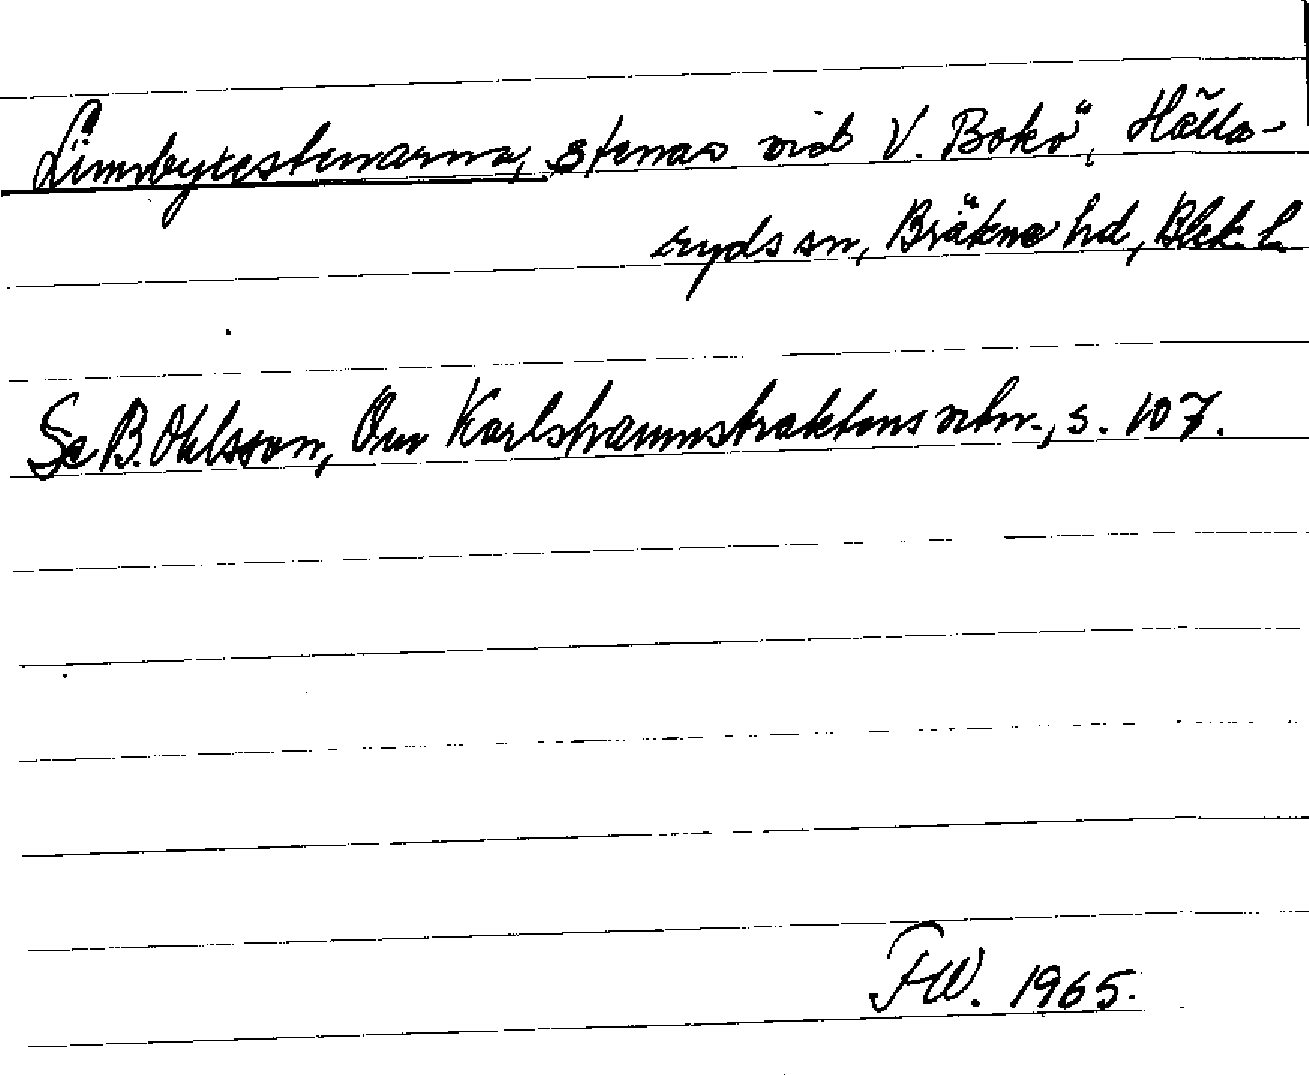 Limbytestenarna, stenar vid V. Bokö, Hälla-
ryds sn, Bräkne hd, Blek. l.
Se B. Ohlsson, Om Karlshamnstraktens nbn., s. 107.
FW. 1965.